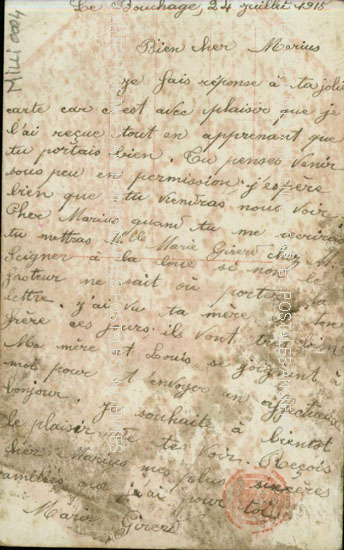 Le Bouchage, 24 juillet 1915
Bien cher Marius
je fais réponse à ta joli
carte car c'est avec plaisir que je
l'ai reçue tout en apprenant que
tu portais bien. Tu penses venir
sous peu en permission j'espère
bien que tu viendras nous voir
Cher Marius quand tu me ecriras
tu mettras Melle Marie Girerd chez M
Seigner à la sinon le
facteur ne sait où porter la
lettre. j'ai vu ta mère et ton
frère ces jours ils vont très bien
Ma mère et Louis se joignent à
moi pour t envoyer un affectueux
bonjour. Je souhaite à bientôt
le plaisir de te voir. Reçois
cher Marius mes plus sincères
amitiés que j'ai pour toi
Marie Girerd
Milli 0004